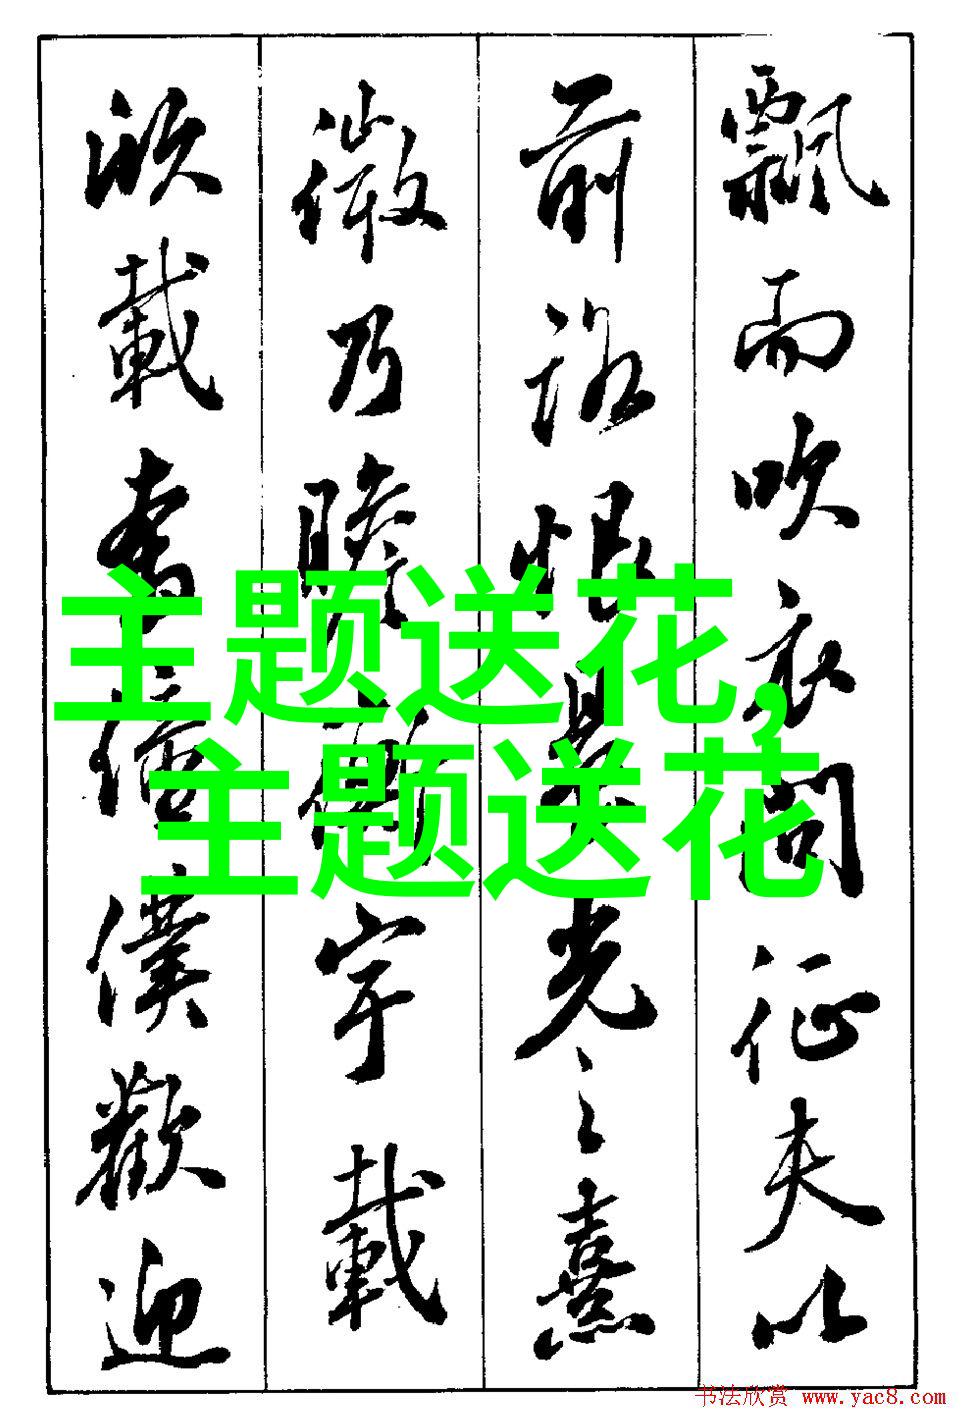 飄而吹衣問征夫以
前路恨晨光之熹
微乃瞻衡宇載
欣載奔僮僕歡迎
主题送花,
主题送花
书法欣赏 www.yac8.com